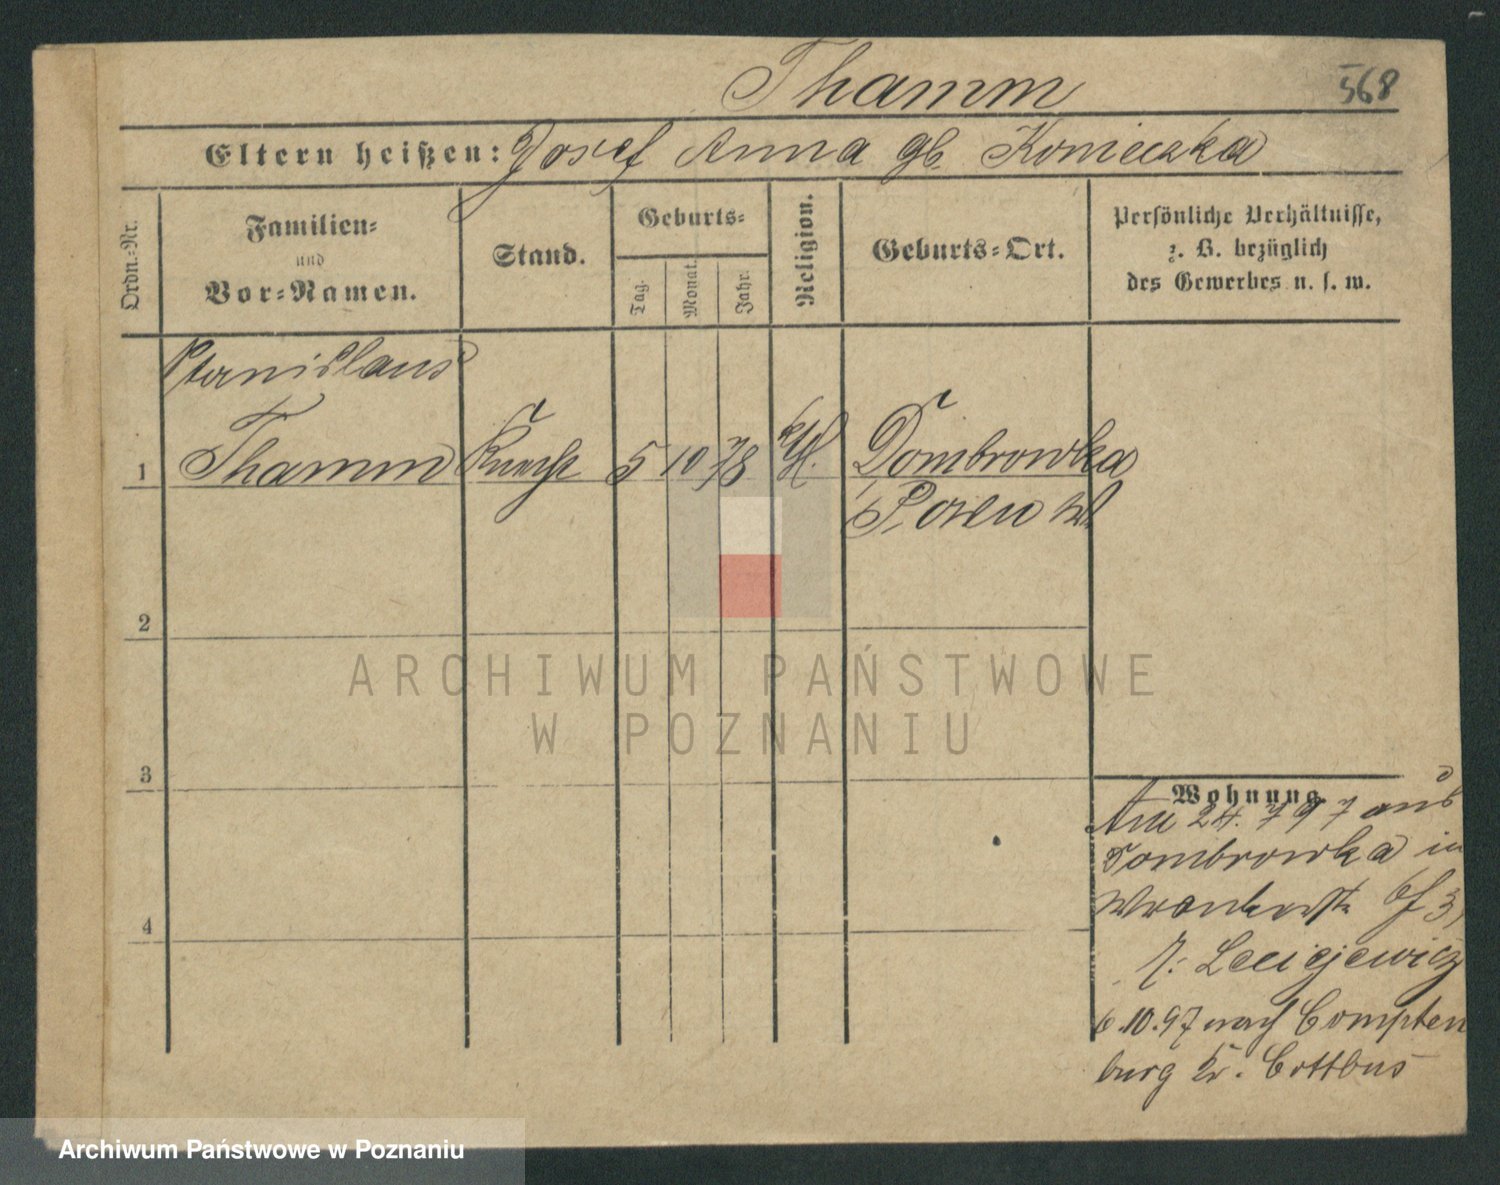 Thamm
568
Eltern heißen: Josef Anna gb. Konieczka
Ordn.-Nr.
Familien-
und
Vor-Namen.
Stand.
Geburts-
Tag.
Monat.
Jahr.
Religion.
Geburts-Ort.
Persönliche Verhältnisse,
z. B. bezüglich
des Gewerbes u. s. w.
Stanislaus
1 Thamm Knecht 5 10 78 kth. Dombrowka
Posen W.
2
3
4
Wohnung
Am 24. 7 97 aus
Dombrowka in
Wronkerstr. 3,
b. Lewicjewicz
6.10.97 nach
burg Kr. Cottbus
ARCHIWUM PAŃSTWOWE
W POZNANIU
Archiwum Państwowe w Poznaniu